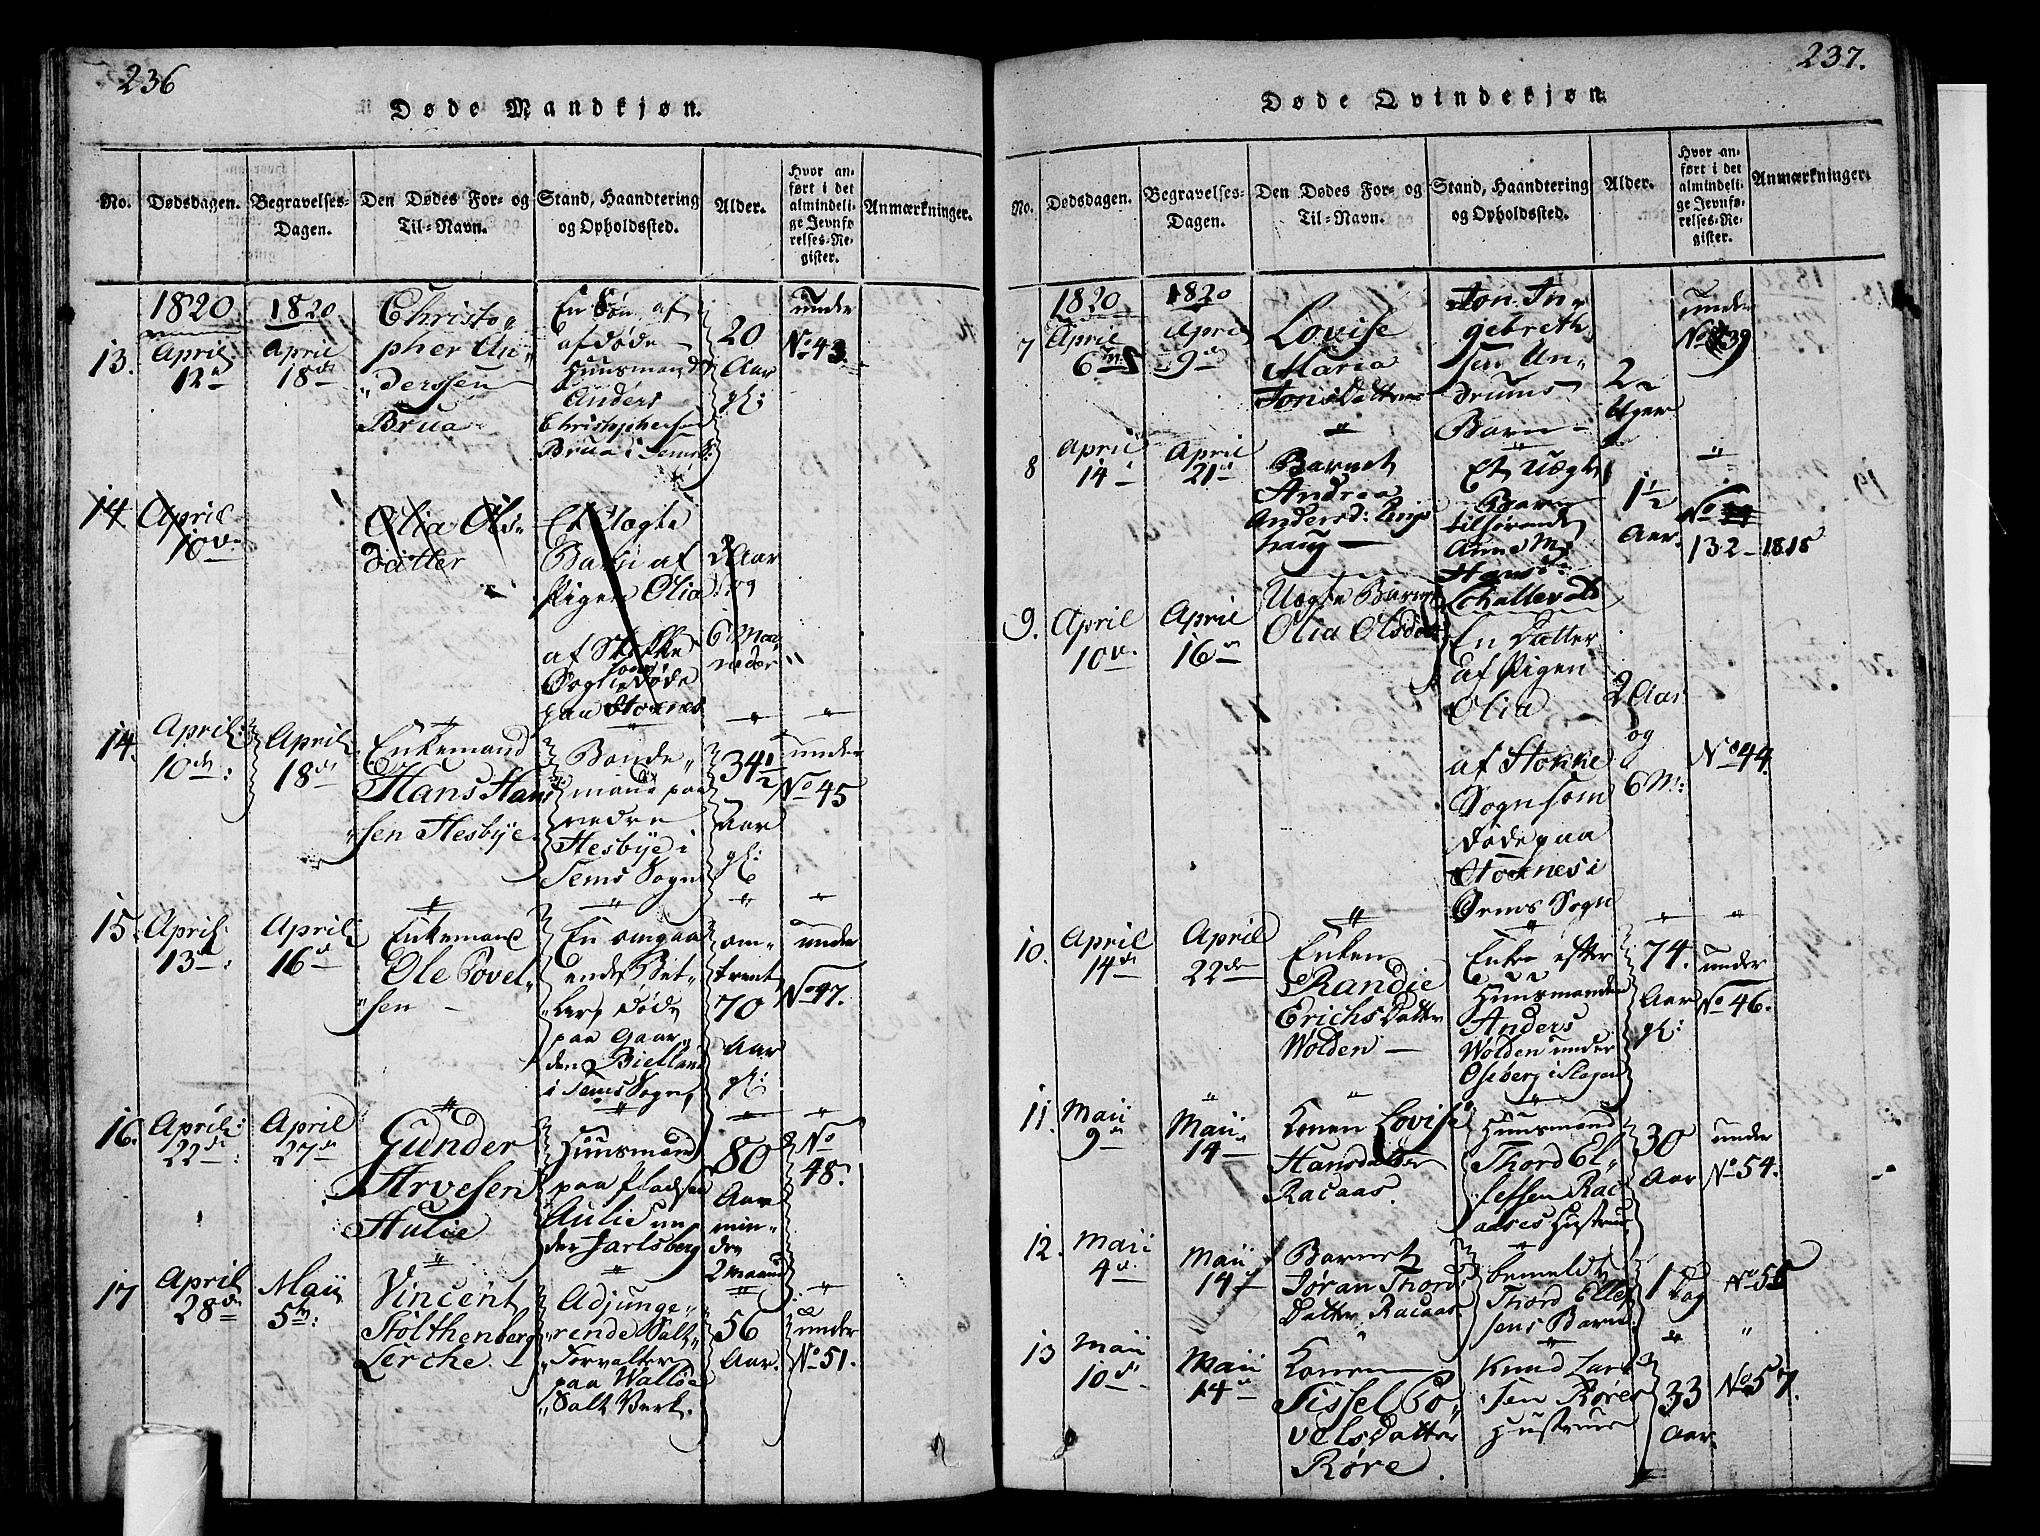 236
Døde Mandkjøn.
No.
Dødsdagen.
Begravelses-
Dagen.
Den Dødes For- og
Til-Navn.
Stand, Haandtering
og Opholdssted.
Alder.
Hvor an-
ført i det
almindeli-
ge Jevnfø-
relses-Re-
gister.
Anmærkninger.
13.
1820
April
12
1820
April
18de
Christo-
pher An-
derssen
Brua
En Søn af
afdøde
Huusmand
Anders
Christophersen
Brua i Sem
20
Aar
gl:
under
No 43.
14
April
10de
Olia Ols-
datter
Et Uægte
Barn af
Pigen Olia
af Stokke
Sogn som
døde
paa Stoknes
2 Aar
og
6 Maa-
neder
14.
April
10de:
April
18de
Enkemand
Hans Han-
sen Hesbye
Bonde-
mand paa
nedre
Hesbye i
Sems Sogn
34 1/2
Aar
gl:
under
No 45
15.
April
13de:
April
16de
Enkemand
Ole Povel-
sen
En omgaa-
ende Bet-
ler død
paa Gaar-
den Bielland
i Sems Sogn
om-
trent
70
Aar
gl:
under
No 47.
16.
April
22de:
April
27de
Gunder
Arvesen
Aulie
Huusmand
paa Pladsen
Aulie un-
der Jarlsberg
80
Aar
min-
dre
2 Maaned
No
48.
17
April
28de
Maii
5te:
Vincent
Stolthenberg
Lerche.
Adjunge-
rende Salt-
Forvalter
paa Walløe
Salt Verk.
56
Aar.
under
No 51.
237.
Døde Qvindekjøn.
No.
Dødsdagen.
Begravelses-
Dagen.
Den Dødes For- og
Til-Navn.
Stand, Haandtering
og Opholdssted.
Alder.
Hvor an-
ført i det
almindeli-
ge Jevnfø-
relses-Re-
gister.
Anmærkninger.
7
1820
April
6
1820
April
9de
Lovise
Maria
JonsDatter
Jon In-
gebreth
sen An-
drums
Barn
2
Uger
under
No 39
8
April
14
April
21
Barnet
Andrea
Andersd:
Et Uægte
Barn
tilhørende
Anne M.
Hansd:
1 1/2
Aar.
No
132-1818
9.
April
10de
April
16de
Uægte Barnet
Olia Olsdatter
En Datter
af Pigen
Olia
af Stokke
Sogn som
døde paa
Stoknes i
Sems Sogn
2 Aar
og
6 M:
No 44.
10.
April
14de
April
22de
Enken
Randie
Erichs Datter
Wolden
Enke efter
Huusmanden
Anders
Wolden under
Oseberg i Slagen
74.
Aar
gl:
under
No 46.
11.
Maii
9de
Maii
14
Konen Lovise
Hansdatter
Racaas.
Huusmand
Thord El-
lefsen Rac-
aases Hustrue
30
Aar
under
No 54.
12.
Maii
4de
Maii
14
Barnet
Jøran Thord
Datter Racaas
bemeldte
Thord Ellef
sens Barn.
1
Dag
No 55
13
Maii
10de
Maii
14de
Konen
Sissel Po-
velsDatter
Røre.
Knud Lar-
sen Røres
Hustrue
33
Aar.
No 57.